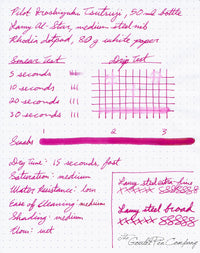 Pilot Iroshizuku Tsutsuji, 50 ml bottle
Lamy Al-Star, medium steel nib
Rhodia dotpad, 80g white paper
Smear Test
Drip Test
5 seconds
10 seconds
20 seconds
30 seconds
1 2 3
Swabs
Dry Time: 15 seconds, fast
Saturation: medium
Water Resistance: low
Ease of Cleaning: medium
Shading: medium
Flow: wet
Lamy steel extra-fine
xxxxxx 88888888
Lamy steel broad
xxxxxx 88888
The Goulet Pen Company